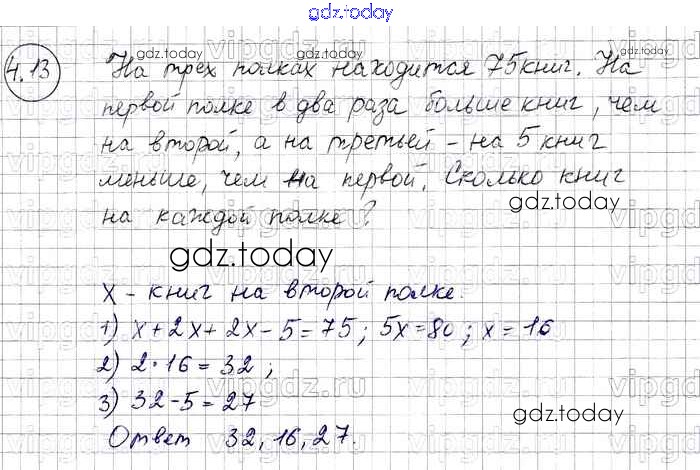 gdz.today
4.13
На трех полках находится 75 книг. На
gdz.today
gdz.today
первой полке в два раза больше книг, чем
на второй, а на третьей - на 5 книг
меньше, чем на первой. Сколько книг
gdz.today
на каждой полке?
gdz.today
x - книг на второй полке.
1) x + 2x + 2x - 5 = 75; 5x = 80; x = 16
2) 2 · 16 = 32;
gdz.today
3) 32 - 5 = 27
gdz.today
Ответ 32, 16, 27.